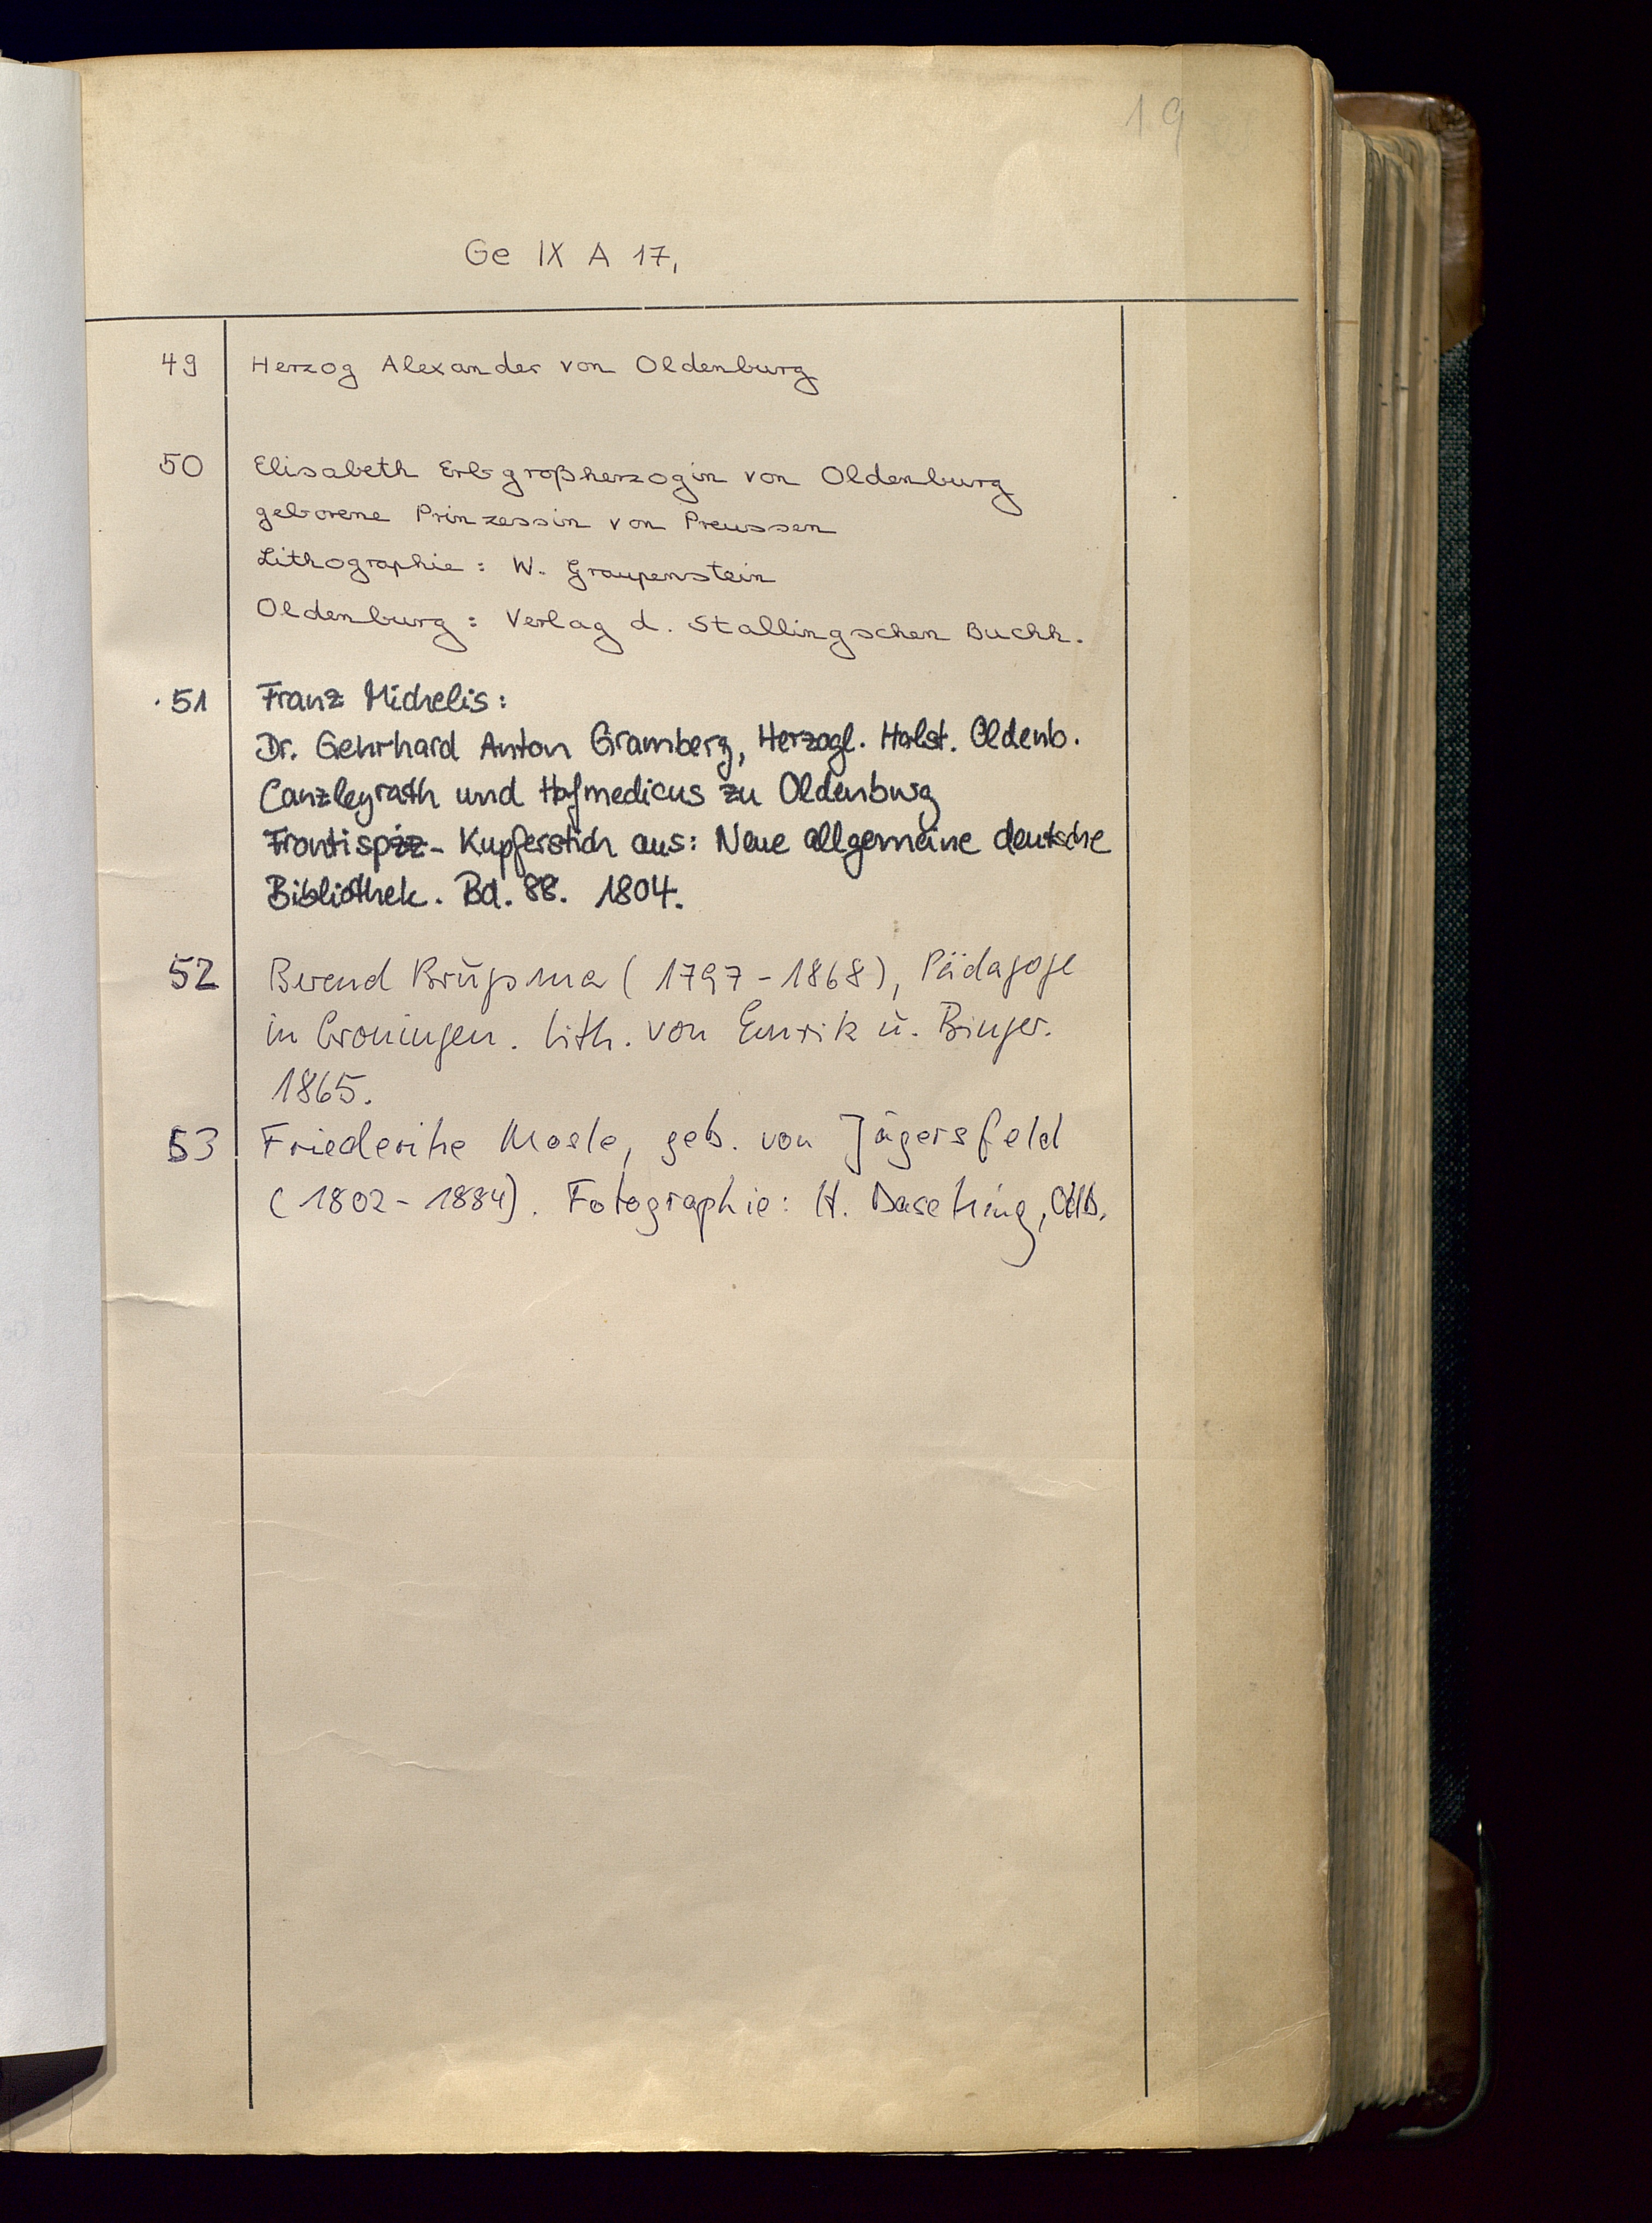 19
Ge IX A 17,
49 Herzog Alexander von Oldenburg
50 Elisabeth Erbgroßherzogin von Oldenburg
geborene Prinzessin von Preussen
Lithographie: W. Graupenstein
Oldenburg: Verlag d. Stallingschen Buchh.
51 Franz Michelis:
Dr. Gehrhard Anton Gramberg, Herzogl. Holst. Oldenb.
Canzleyrath und Hofmedicus zu Oldenburg
Frontispiz- Kupferstich aus: Neue allgemeine deutsche
Bibliothek. Bd. 88. 1804.
52 Berend Brugsma (1797-1868), Pädagoge
in Groningen. Lith. von Emrik u. Binger.
1865.
53 Friederike Mosle, geb. von Jägersfeld
(1802-1884). Fotographie: H. Daseking, Oldb.